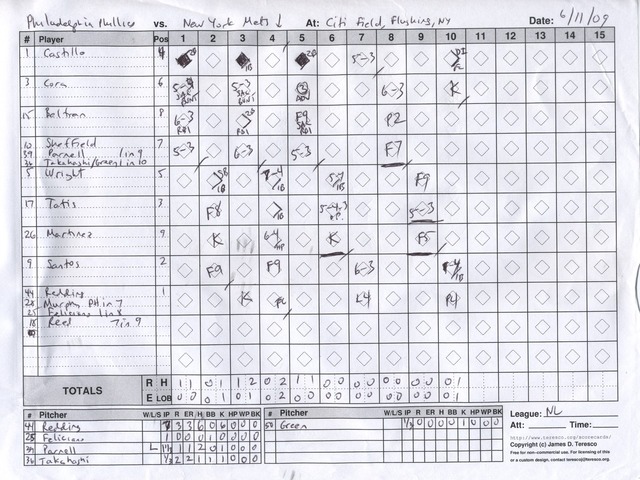 Philadelphia Phillies vs. New York Mets ↓ At: Citi Field, Flushing, NY Date: 6/11/09
# Player Pos 1 2 3 4 5 6 7 8 9 10 11 12 13 14 15
1 Castillo 4 2B 1B 2B 5-3
3 Cora 6 5-3 SAC BUNT 5-3 SAC BUNT 6-3 K
15 Beltran 8 6-3 RBI RBI F9 SAC RBI P2
10 Sheffield 7 5-3 6-3 5-3 F7
39 Parnell 1 in 9
36 Takahashi/Green 1 in 10
5 Wright 5 1B 1B 1B F9
17 Tatis 3 F8 1B 6-4-3 DP 5-3
26 Martinez 9 K 6-4 DP K F5
9 Santos 2 F9 F9 6-3 1B
44 Redding 1 K K4 P4
28 Murphy PH in 7
25 Feliciano 1 in 8
18 Reed 7 in 9
TOTALS R H 1 1 0 1 1 2 0 2 1 1 0 1 0 0 0 0 0 0 0 1
E LOB
# Pitcher W/L/S IP R ER H BB K HP WP BK # Pitcher W/L/S IP R ER H BB K HP WP BK
44 Redding 7 3 3 6 0 6 0 0 0 50 Green 1/3 0 0 0 1 0 0 0 0
25 Feliciano 1 0 0 0 1 0 0 0
39 Parnell L 1 1/3 1 1 2 0 1 0 0 0
36 Takahashi 1/3 2 2 1 1 1 0 0 0
League: NL
Att: Time:
http://www.teresco.org/scorecards/
Copyright (c) James D. Teresco
Free for non-commercial use. For licensing of this
or a custom design, contact teresco@teresco.org.